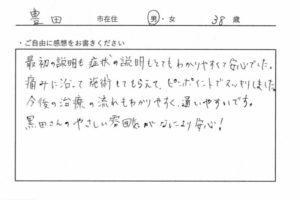 豊田 市在住 男・女 38 歳
・ご自由に感想をお書きください
最初の説明も症状の説明もとてもわかりやすくて安心でした。
痛みに沿って施術してもらえて、ピンポイントでスッキリしました。
今後の治療の流れもわかりやすく、通いやすいです。
黒田さんのやさしい雰囲気がなにより安心！